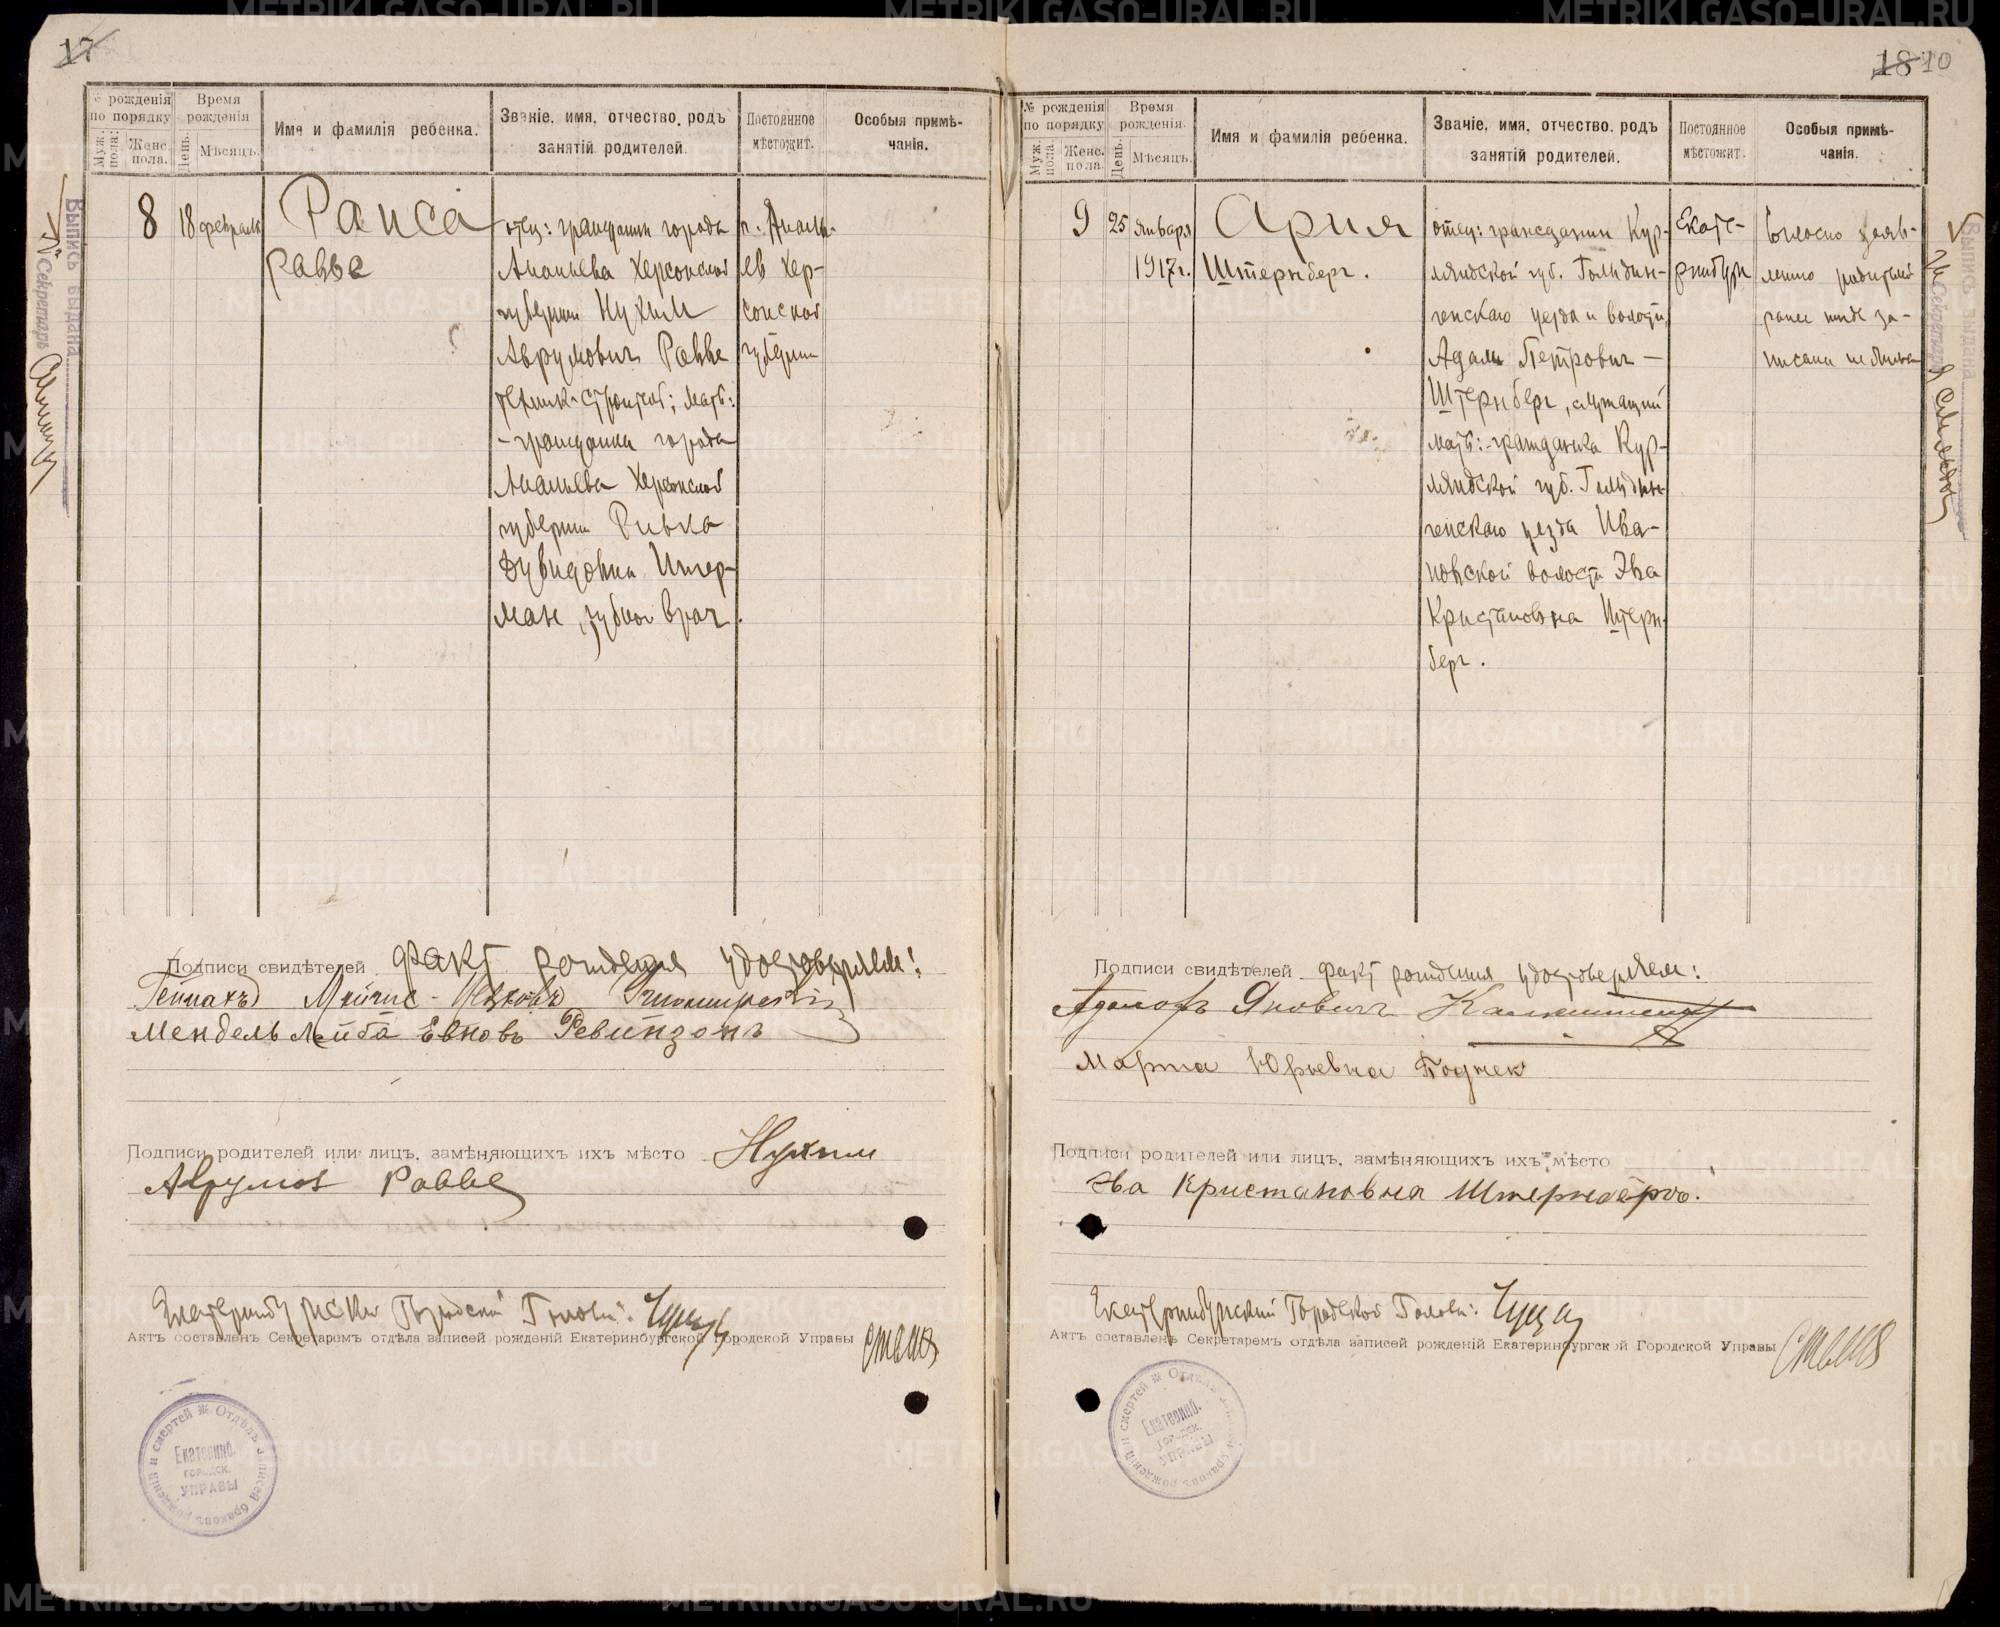 17
№ рожденія по порядку
Муж. пола.
Женс. пола.
Время рожденія
День.
Мѣсяцъ.
Имя и фамилія ребенка.
Званіе, имя, отчество, родъ
занятій родителей.
Постоянное
мѣстожит.
Особыя примѣ-
чанія.
8
18
февраля
Раиса
Равве
отец: гражданин города
Ананьева Херсонской
губернии Нухим
Аврумович Равве
техник-строител; мать:
- гражданка города
Ананьева Херсонской
губернии Ривка
Дувидовна Имер-
ман, зубной врач.
г. Анань-
ев Хер-
сонской
губернии
Выпись выдана
Секретарь
Подписи свидѣтелей Факт рождения удостоверяем:
Мендель Лейба Евновъ Ревинзонъ
Подписи родителей или лицъ, замѣняющихъ ихъ мѣсто Нухим
Аврумов Равве
Екатеринбургский Городской Голова:
Актъ составленъ Секретаремъ отдѣла записей рожденій Екатеринбургской Городской Управы
Отдѣлъ записей браковъ рожденій и смертей
Екатеринб.
городск.
УПРАВЫ
18 10
№ рожденія по порядку
Муж. пола.
Женс. пола
Время рожденія.
День.
Мѣсяцъ.
Имя и фамилія ребенка.
Званіе, имя, отчество, родъ
занятій родителей.
Постоянное
мѣстожит.
Особыя примѣ-
чанія.
9
25
января
1917г.
Ария
Штернберг.
отец: гражданин Кур-
ляндской губ. Гольдин-
генскаго уезда и волости,
Адам Петрович —
Штернберг, служащий
мать: гражданка Кур-
ляндской губ. Гольдин-
генскаго уезда Ива-
новской волости Эва
Кристановна Штерн-
берг.
Екате-
ринбург
Согласно заяв-
лению родителей
ранее нигде за-
писана не была
Выпись выдана
Секретарь
Подписи свидѣтелей Факт рождения удостоверяем:
Адольфъ Яновичъ
Марта Юрьевна
Подписи родителей или лицъ, замѣняющихъ ихъ мѣсто
Эва Кристановна Штернбергъ.
Екатеринбургский Городской Голова:
Актъ составленъ Секретаремъ отдѣла записей рожденій Екатеринбургской Городской Управы
Отдѣлъ записей браковъ рожденій и смертей
Екатеринб.
городск.
УПРАВЫ
METRIKI.GASO-URAL.RU